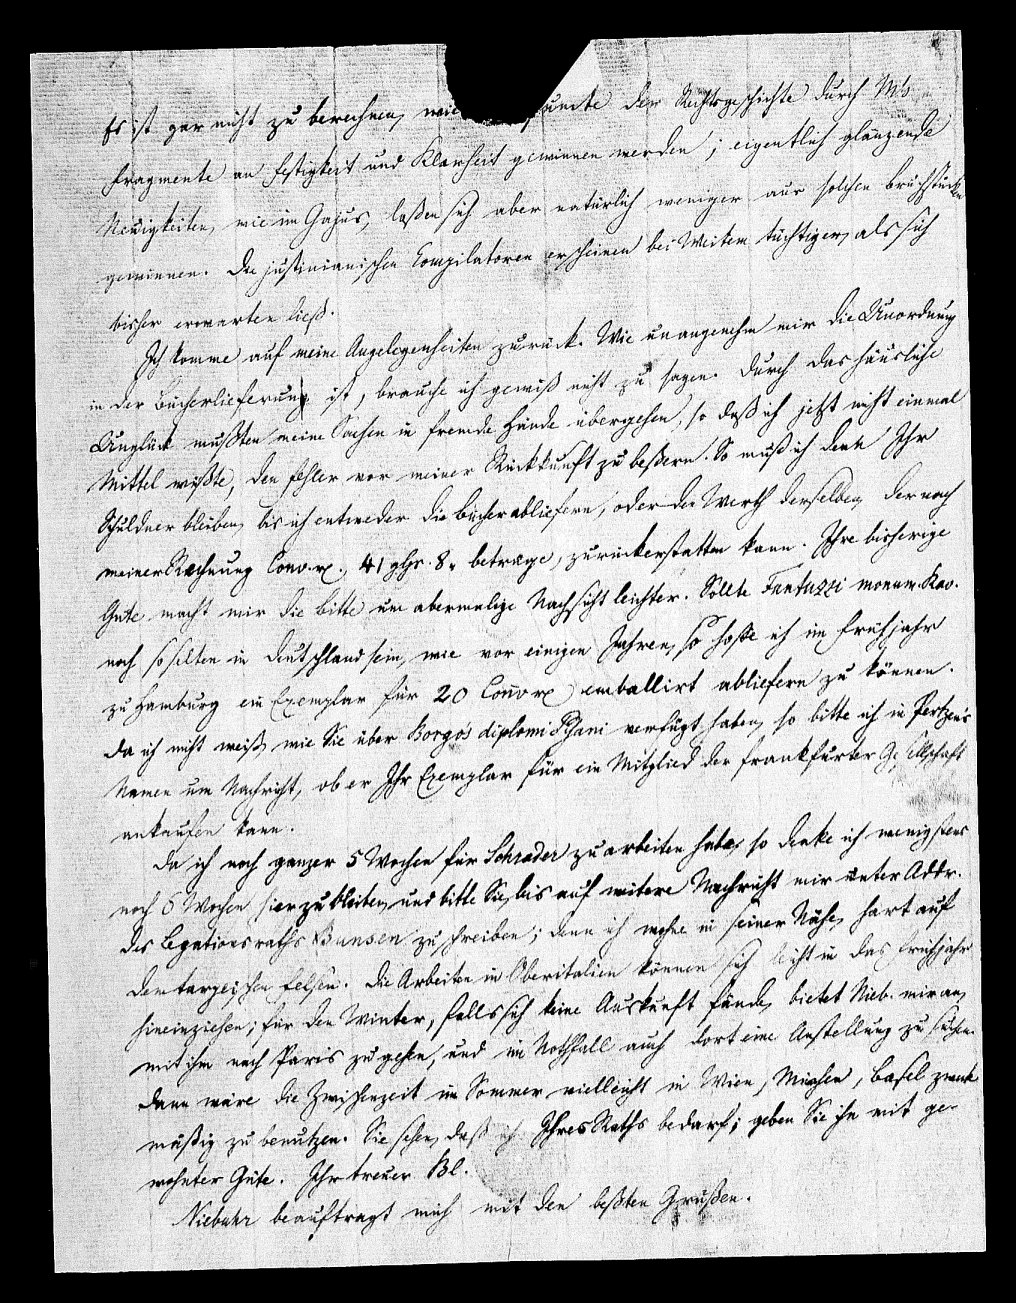 Es ist gar nicht zu berechnen, wie puncte der Rechtsgeschichte durch Ms
fragmente an Festigkeit und Klarheit gewinnen werden; eigentlich glänzende
Neuigkeiten, wie im Gajus, laßen sich aber natürlich weniger aus solchen Bruchstücken
gewinnen. Die justinianischen Compilatoren erscheinen bei Weitem tüchtiger, als sich
bisher erwarten ließ.
Ich komme auf meine Angelegenheiten zurück. Wie unangenehm mir die Unordnung
in der Bücherlieferung ist, brauche ich gewiß nicht zu sagen. Durch das häusliche
Unglück mußten meine Sachen in fremde Hände übergehen, so daß ich jetzt nicht einmal
Mittel wüßte, den Fehler vor meiner Rückkunft zu beßern. So muß ich denn Ihr
Schuldner bleiben, bis ich entweder die Bücher abliefern, oder den Werth derselben, der nach
meiner Rechnung Conv. 41 8 betrage, zurückerstatten kann. Ihre bisherige
Güte macht mir die Bitte um abermalige Nachsicht leichter. Sollte Fantuzzi monum. Rav.
noch so selten in Deutschland sein, wie vor einigen Jahren, so hoffe ich im Frühjahr
zu Hamburg ein Exemplar für 20 Conv emballirt abliefern zu können.
Da ich nicht weiß, wie Sie über Borgo's diplomi Pisani verfügt haben, so bitte ich in Pertzen's
Namen um Nachricht, ob er Ihr Exemplar für ein Mitglied der Frankfurter Gesellschaft
ankaufen kann.
Da ich noch ganzer 5 Wochen für Schrader zu arbeiten habe, so denke ich wenigstens
noch 6 Wochen hier zu bleiben, und bitte Sie, bis auf weitere Nachricht mir unter Addr.
des Legationsraths Bunsen zu schreiben; denn ich wohne in seiner Nähe, hart auf
dem tarpejischen Felsen. Die Arbeiten in Oberitalien können sich leicht in das Frühjahr
hineinziehen; für den Winter, falls sich keine Auskunft fände, bietet Nieb. mir an,
mit ihm nach Paris zu gehen, und im Nothfall auch dort eine Anstellung zu suchen.
Dann wäre die Zwischenzeit im Sommer vielleicht in Wien, München, Basel zweck
mäßig zu benutzen. Sie sehen, daß ich Ihres Raths bedarf; geben Sie ihn mit ge-
wohnter Güte. Ihr treuer Bl.
Niebuhr beauftragt mich mit den beßten Grüßen.